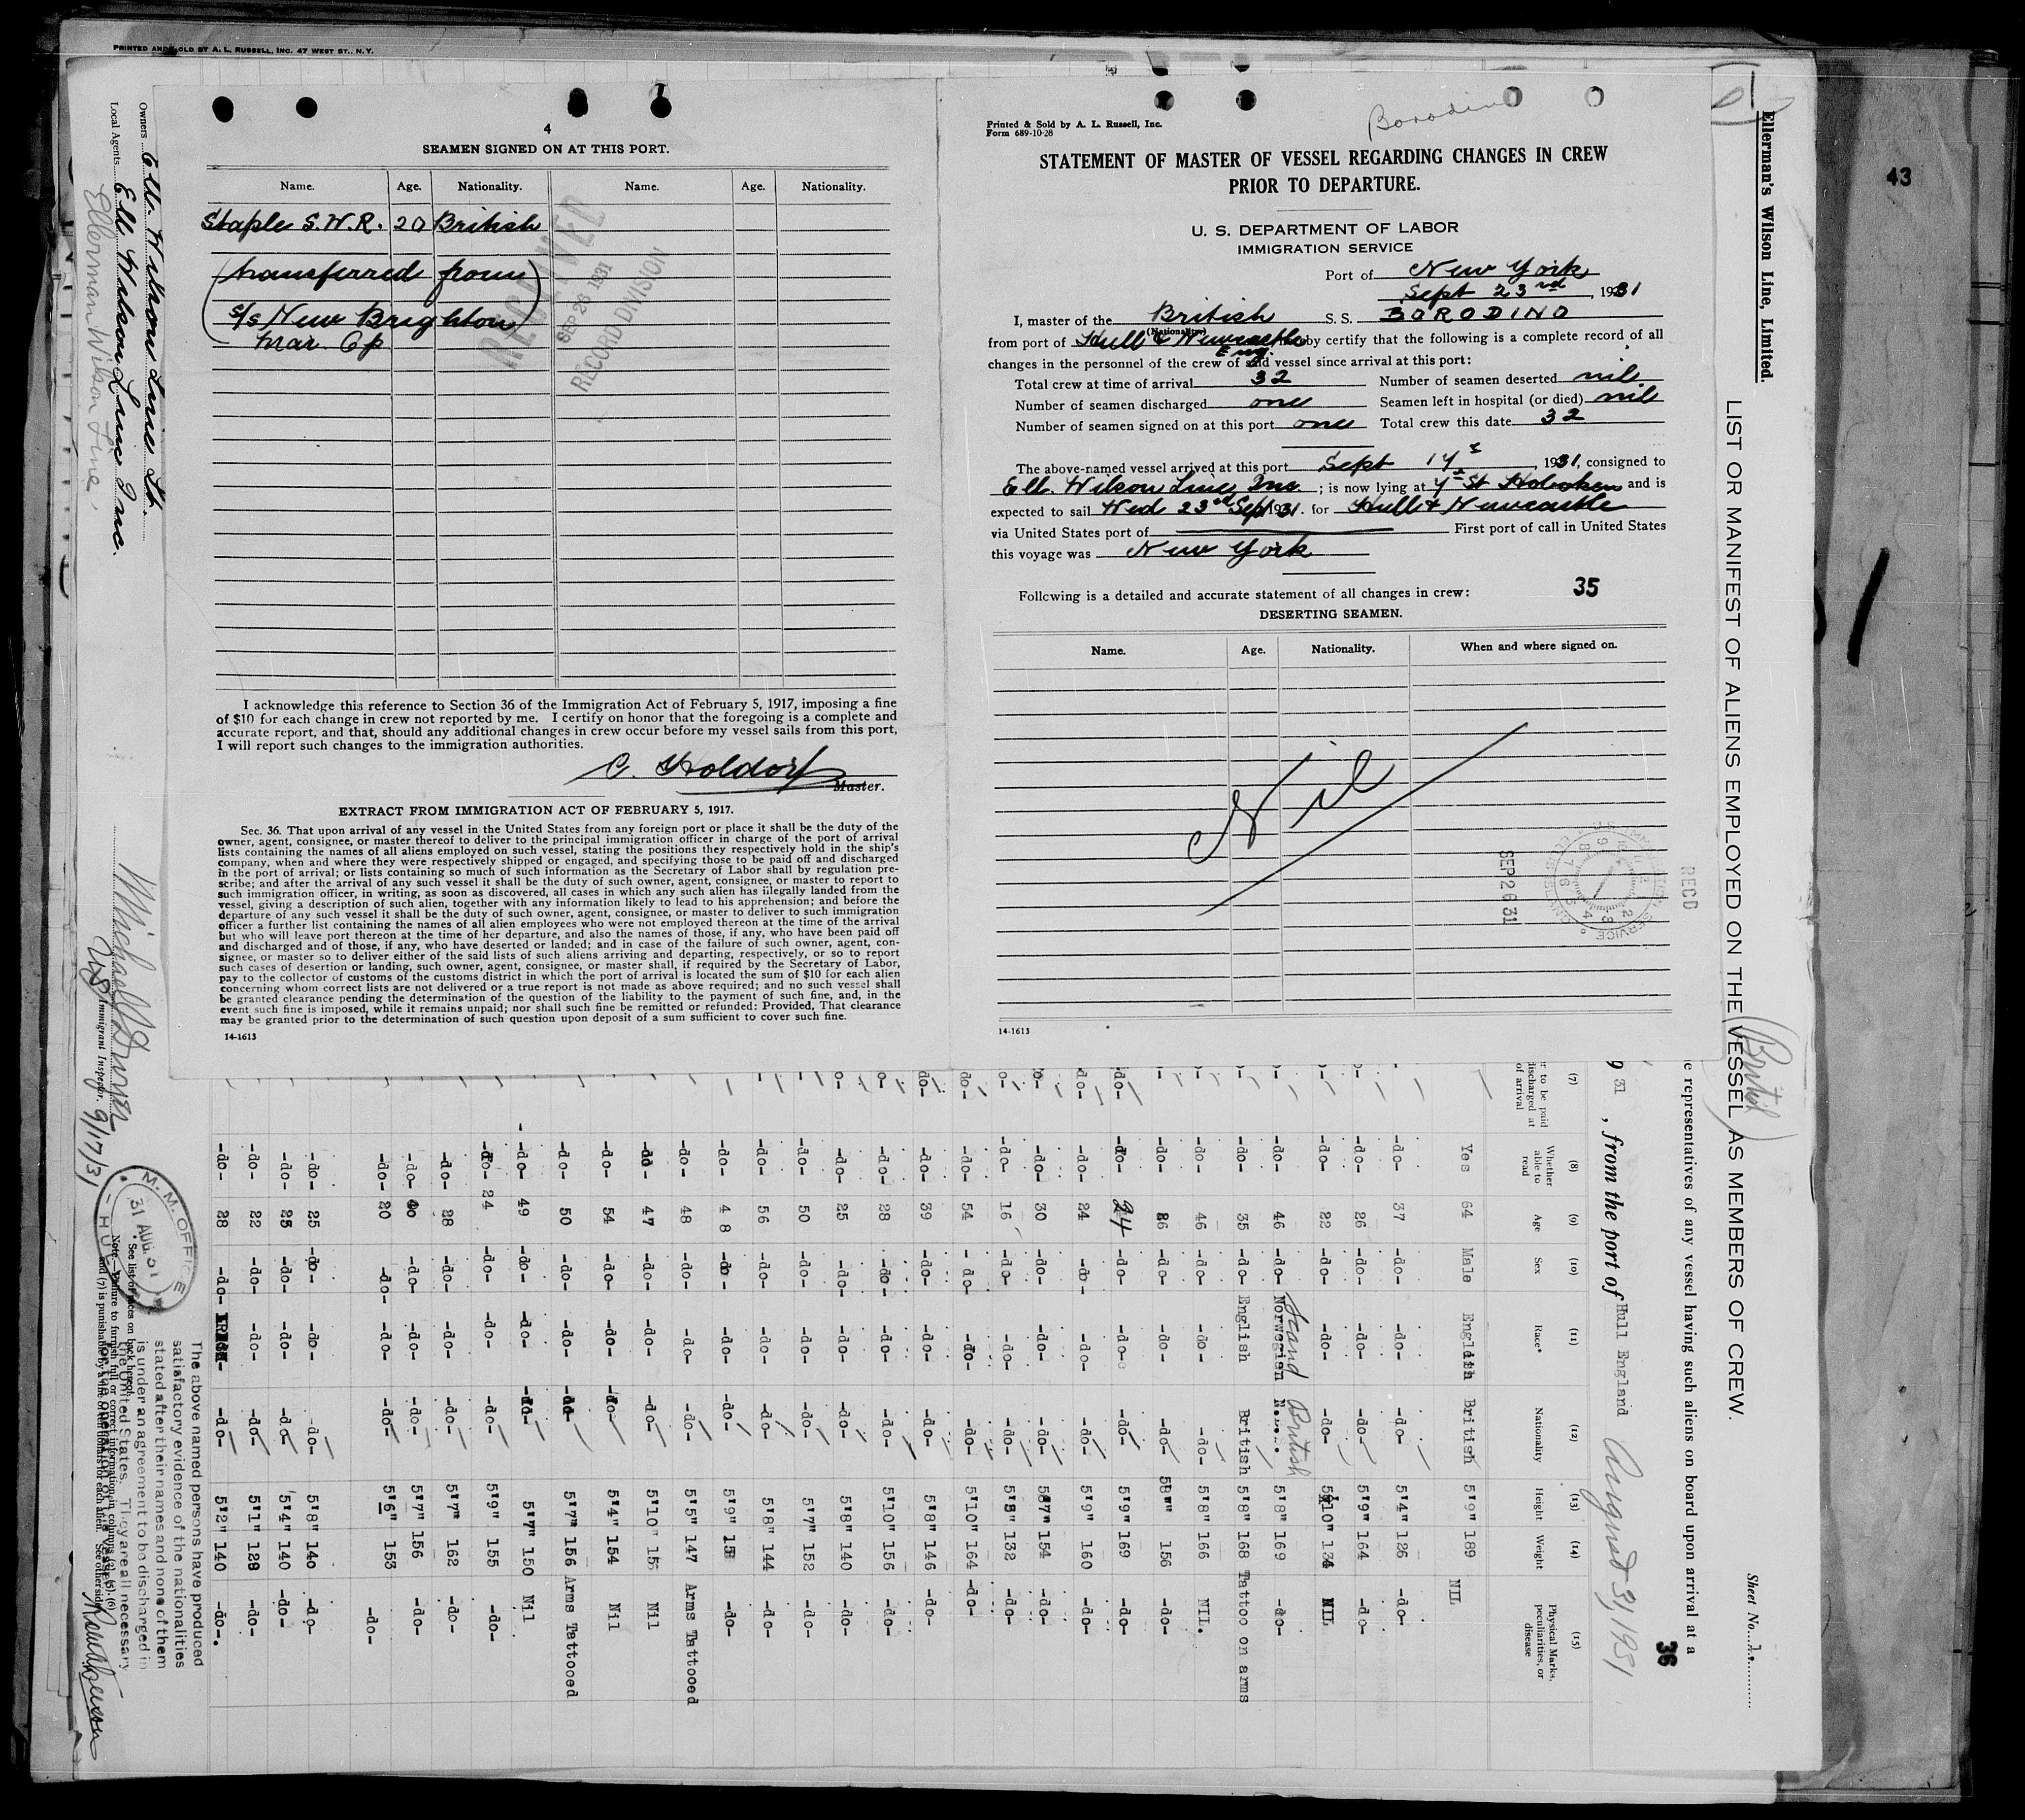 PRINTED AND SOLD BY A. L. RUSSELL, INC. 47 WEST ST., N.Y.
4
SEAMEN SIGNED ON AT THIS PORT.
Name. Age. Nationality. Name. Age. Nationality.
Staple S.W.R. 20 British
(transferred from
s/s New Brighton)
Mar. Op
RECEIVED
SEP 26 1931
RECORD DIVISION
I acknowledge this reference to Section 36 of the Immigration Act of February 5, 1917, imposing a fine
of $10 for each change in crew not reported by me. I certify on honor that the foregoing is a complete and
accurate report, and that, should any additional changes in crew occur before my vessel sails from this port,
I will report such changes to the immigration authorities.
C. Holdorf
Master.
EXTRACT FROM IMMIGRATION ACT OF FEBRUARY 5, 1917.
Sec. 36. That upon arrival of any vessel in the United States from any foreign port or place it shall be the duty of the
owner, agent, consignee, or master thereof to deliver to the principal immigration officer in charge of the port of arrival
lists containing the names of all aliens employed on such vessel, stating the positions they respectively hold in the ship's
company, when and where they were respectively shipped or engaged, and specifying those to be paid off and discharged
in the port of arrival; or lists containing so much of such information as the Secretary of Labor shall by regulation pre-
scribe; and after the arrival of any such vessel it shall be the duty of such owner, agent, consignee, or master to report to
such immigration officer, in writing, as soon as discovered, all cases in which any such alien has illegally landed from the
vessel, giving a description of such alien, together with any information likely to lead to his apprehension; and before the
departure of any such vessel it shall be the duty of such owner, agent, consignee, or master to deliver to such immigration
officer a further list containing the names of all alien employees who were not employed thereon at the time of the arrival
but who will leave port thereon at the time of her departure, and also the names of those, if any, who have been paid off
and discharged and of those, if any, who have deserted or landed; and in case of the failure of such owner, agent, con-
signee, or master so to deliver either of the said lists of such aliens arriving and departing, respectively, or so to report
such cases of desertion or landing, such owner, agent, consignee, or master shall, if required by the Secretary of Labor,
pay to the collector of customs of the customs district in which the port of arrival is located the sum of $10 for each alien
concerning whom correct lists are not delivered or a true report is not made as above required; and no such vessel shall
be granted clearance pending the determination of the question of the liability to the payment of such fine, and, in the
event such fine is imposed, while it remains unpaid; nor shall such fine be remitted or refunded: Provided, That clearance
may be granted prior to the determination of such question upon deposit of a sum sufficient to cover such fine.
14-1613
Borodino
Printed & Sold by A. L. Russell, Inc.
Form 689-10-28
STATEMENT OF MASTER OF VESSEL REGARDING CHANGES IN CREW
PRIOR TO DEPARTURE.
U. S. DEPARTMENT OF LABOR
IMMIGRATION SERVICE
Port of New York
Sept 23rd, 1931
I, master of the British S. S. BORODINO
(Nationality)
from port of Hull & Newcastle Eng. hereby certify that the following is a complete record of all
changes in the personnel of the crew of said vessel since arrival at this port:
Total crew at time of arrival 32 Number of seamen deserted nil.
Number of seamen discharged one Seamen left in hospital (or died) nil
Number of seamen signed on at this port one Total crew this date 32
The above-named vessel arrived at this port Sept 17th, 1931, consigned to
Ell. Wilson Line, Inc. ; is now lying at 7th St Hoboken and is
expected to sail Wed 23rd Sept 1931. for Hull & Newcastle
via United States port of First port of call in United States
this voyage was New York
Following is a detailed and accurate statement of all changes in crew:
35
DESERTING SEAMEN.
Name. Age. Nationality. When and where signed on.
Nil
SEP 26 31
RECD
14-1613
43
Ellerman's Wilson Line, Limited.
LIST OR MANIFEST OF ALIENS EMPLOYED ON THE VESSEL AS MEMBERS OF CREW.
(British)
Sheet No. 1.
e representatives of any vessel having such aliens on board upon arrival at a
36
31, from the port of Hull England August 31, 1931
(7) (8) (9) (10) (11) (12) (13) (14) (15)
r to be paid
discharged at
of arrival
Whether able to read
Age
Sex
Race*
Nationality
Height
Weight
Physical Marks, peculiarities, or disease
Yes 64 Male English British 5'9" 189 NIL
-do- 37 -do- -do- -do- 5'4" 126 -do-
-do- 26 -do- -do- -do- 5'9" 164 -do-
-do- 22 -do- -do- -do- 5'10" 134 NIL
-do- 46 -do- Norwegian Scand British 5'8" 169 -do-
-do- 35 -do- English British 5'8" 168 Tattoo on arms
-do- 46 -do- -do- -do- 5'8" 166 NIL.
-do- 26 -do- -do- -do- 5'8" 156 -do-
-do- 24 -do- -do- -do- 5'9" 169 -do-
-do- 24 -do- -do- -do- 5'9" 160 -do-
-do- 30 -do- -do- -do- 5'7" 154 -do-
-do- 16 -do- -do- -do- 5'5" 132 -do-
-do- 54 -do- -do- -do- 5'10" 164 -do-
-do- 39 -do- -do- -do- 5'8" 146 -do-
-do- 28 -do- -do- -do- 5'10" 156 -do-
-do- 25 -do- -do- -do- 5'8" 140 -do-
-do- 50 -do- -do- -do- 5'7" 152 -do-
-do- 56 -do- -do- -do- 5'8" 144 -do-
-do- 48 -do- -do- -do- 5'9" -do-
-do- 48 -do- -do- -do- 5'5" 147 Arms Tattooed
-do- 47 -do- -do- -do- 5'10" Nil
-do- 54 -do- -do- -do- 5'4" 154 Nil
-do- 50 -do- -do- -do- 5'7" 156 Arms Tattooed
-do- 49 -do- -do- -do- 5'7" 150 Nil
-do- 24 -do- -do- -do- 5'9" 155 -do-
-do- 28 -do- -do- -do- 5'7" 162 -do-
-do- -do- -do- -do- 5'7" 156 -do-
-do- 20 -do- -do- -do- 5'6" 153 -do-
-do- 25 -do- -do- -do- 5'8" 140 -do-
-do- 25 -do- -do- -do- 5'4" 140 -do-
-do- 22 -do- -do- -do- 5'1" 128 -do-
-do- 28 -do- IRISH -do- 5'2" 140 -do-.
The above named persons have produced
satisfactory evidence of the nationalities
stated after their names and none of them
is under an agreement to be discharged in
the United States. They are all necessary
M. M. OFFICE
31 AUG. 31
HULL
Owners Ell. Wilson Line Ld.
Local Agents Ell. Wilson Line Inc.
Ellerman Wilson Line,
Immigrant Inspector. 9/17/31